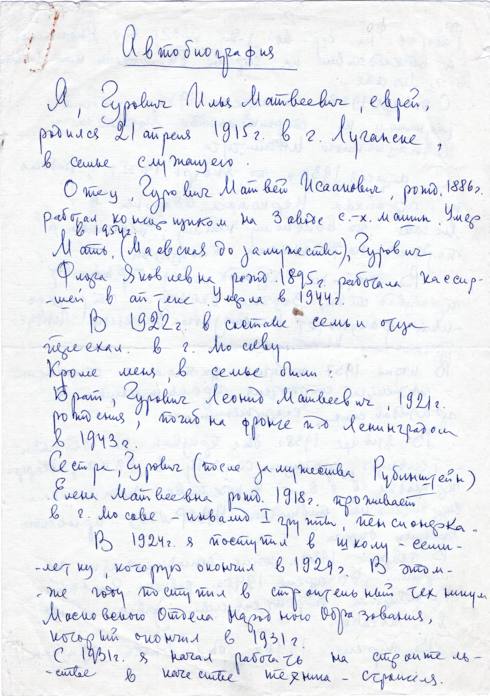 Автобиография
Я, Гурович Илья Матвеевич, еврей,
родился 21 апреля 1915г. в г. Луганске,
в семье служащего.
Отец Гурович Матвей Исаакович, рожд. 1886г.
работал конторщиком на Заводе с.-х. машин Умер
в 1954г.
Мать, (Маевская до замужества), Гурович
Фира Яковлевна рожд. 1895г. работала кассир-
-шей в аптеке Умерла в 1944г.
В 1922г. в составе семьи отца
переехал в г. Москву.
Кроме меня в семье были:
Брат, Гурович Леонид Матвеевич, 1921г.
рождения, погиб на фронте под Ленинградом
в 1943г.
Сестра, Гурович (после замужества Рубинштейн)
Елена Матвеевна рожд. 1918г. проживает
в г. Москве - инвалид I группы, пенсионерка.
В 1924г. я поступил в школу-семи-
-летку, которую окончил в 1929г. В этом-
-же году поступил в строительный техникум
Московского Отдела Народного Образования,
который окончил в 1931г.
С 1931г. я начал работать на строитель-
-стве в качестве техника-строителя.